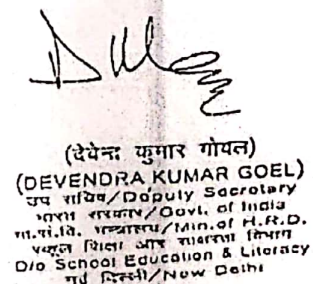 (देवेन्द्र कुमार गोयल)
(DEVENDRA KUMAR GOEL)
उप सचिव/Deputy Secretary
भारत सरकार/Govt. of India
मा.सं.वि. मन्त्रालय/Min.of H.R.D.
स्कूल शिक्षा और साक्षरता विभाग
D/o School Education & Literacy
नई दिल्ली/New Delhi